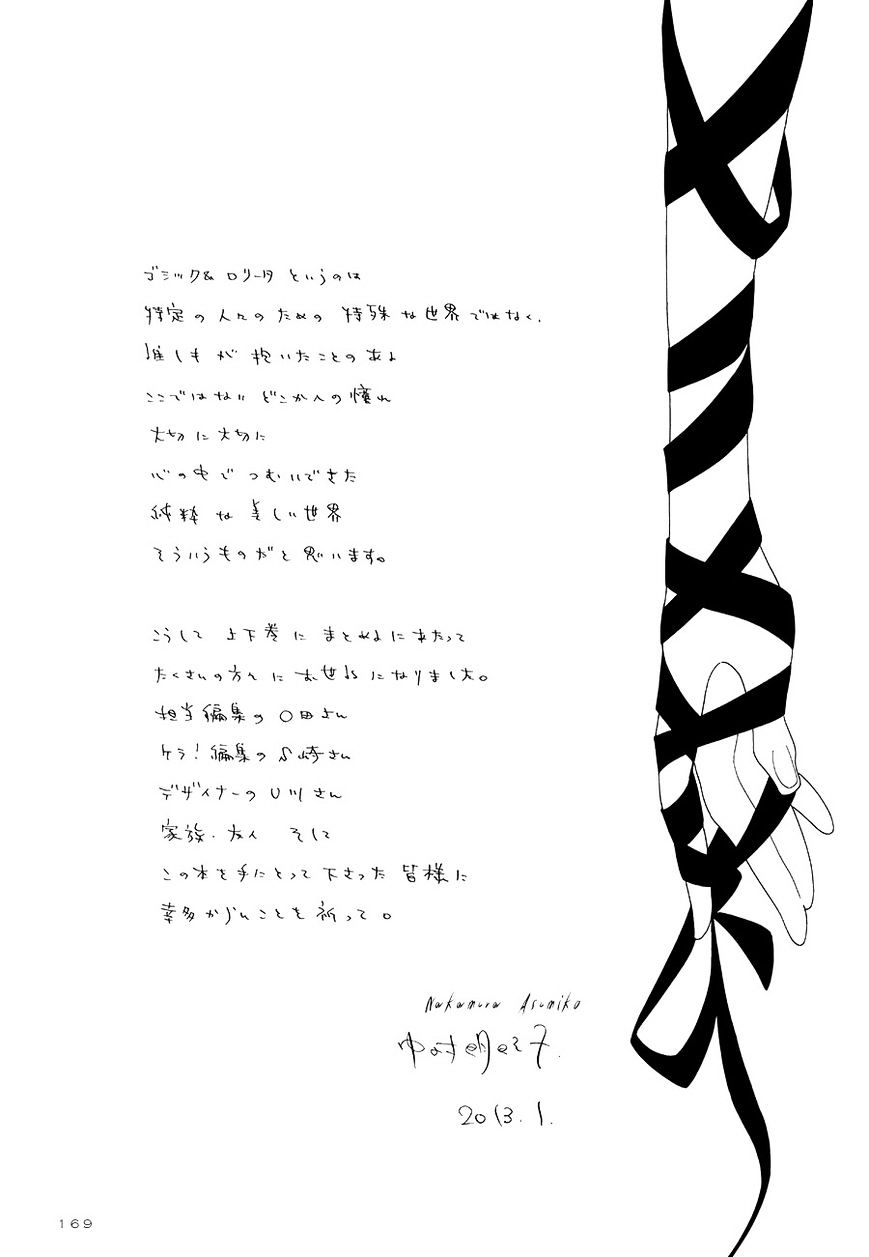 ゴシック&ロリータというのは
特定の人々のための特殊な世界ではなく、
誰しもが抱いたことのある
ここではないどこかへの憧れ
大切に大切に
心の中でつむいできた
純粋な美しい世界
そういうものだと思います。
こうして上下巻にまとめるにあたって
たくさんの方々にお世話になりました。
担当編集の○田さん
ケラ!編集の崎さん
デザイナーのU川さん
家族・友人 そして
この本を手にとって下さった皆様に
幸多からんことを祈って。
Nakamura Asumiko
中村明日美子
2013.1.
169